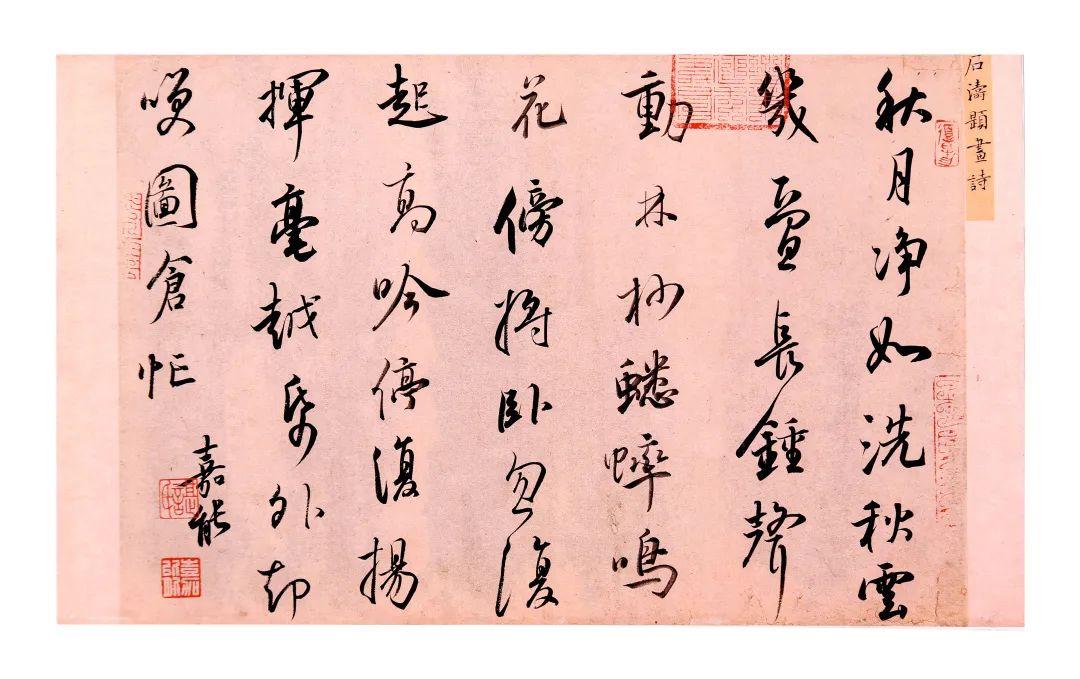 石濤題畫詩
秋月净如洗秋雲
幾疊長鍾聲
動林杪蟋蟀鳴
花傍將卧忽復
起高吟停復揚
揮毫越帋外却
咲圖倉忙
嘉能